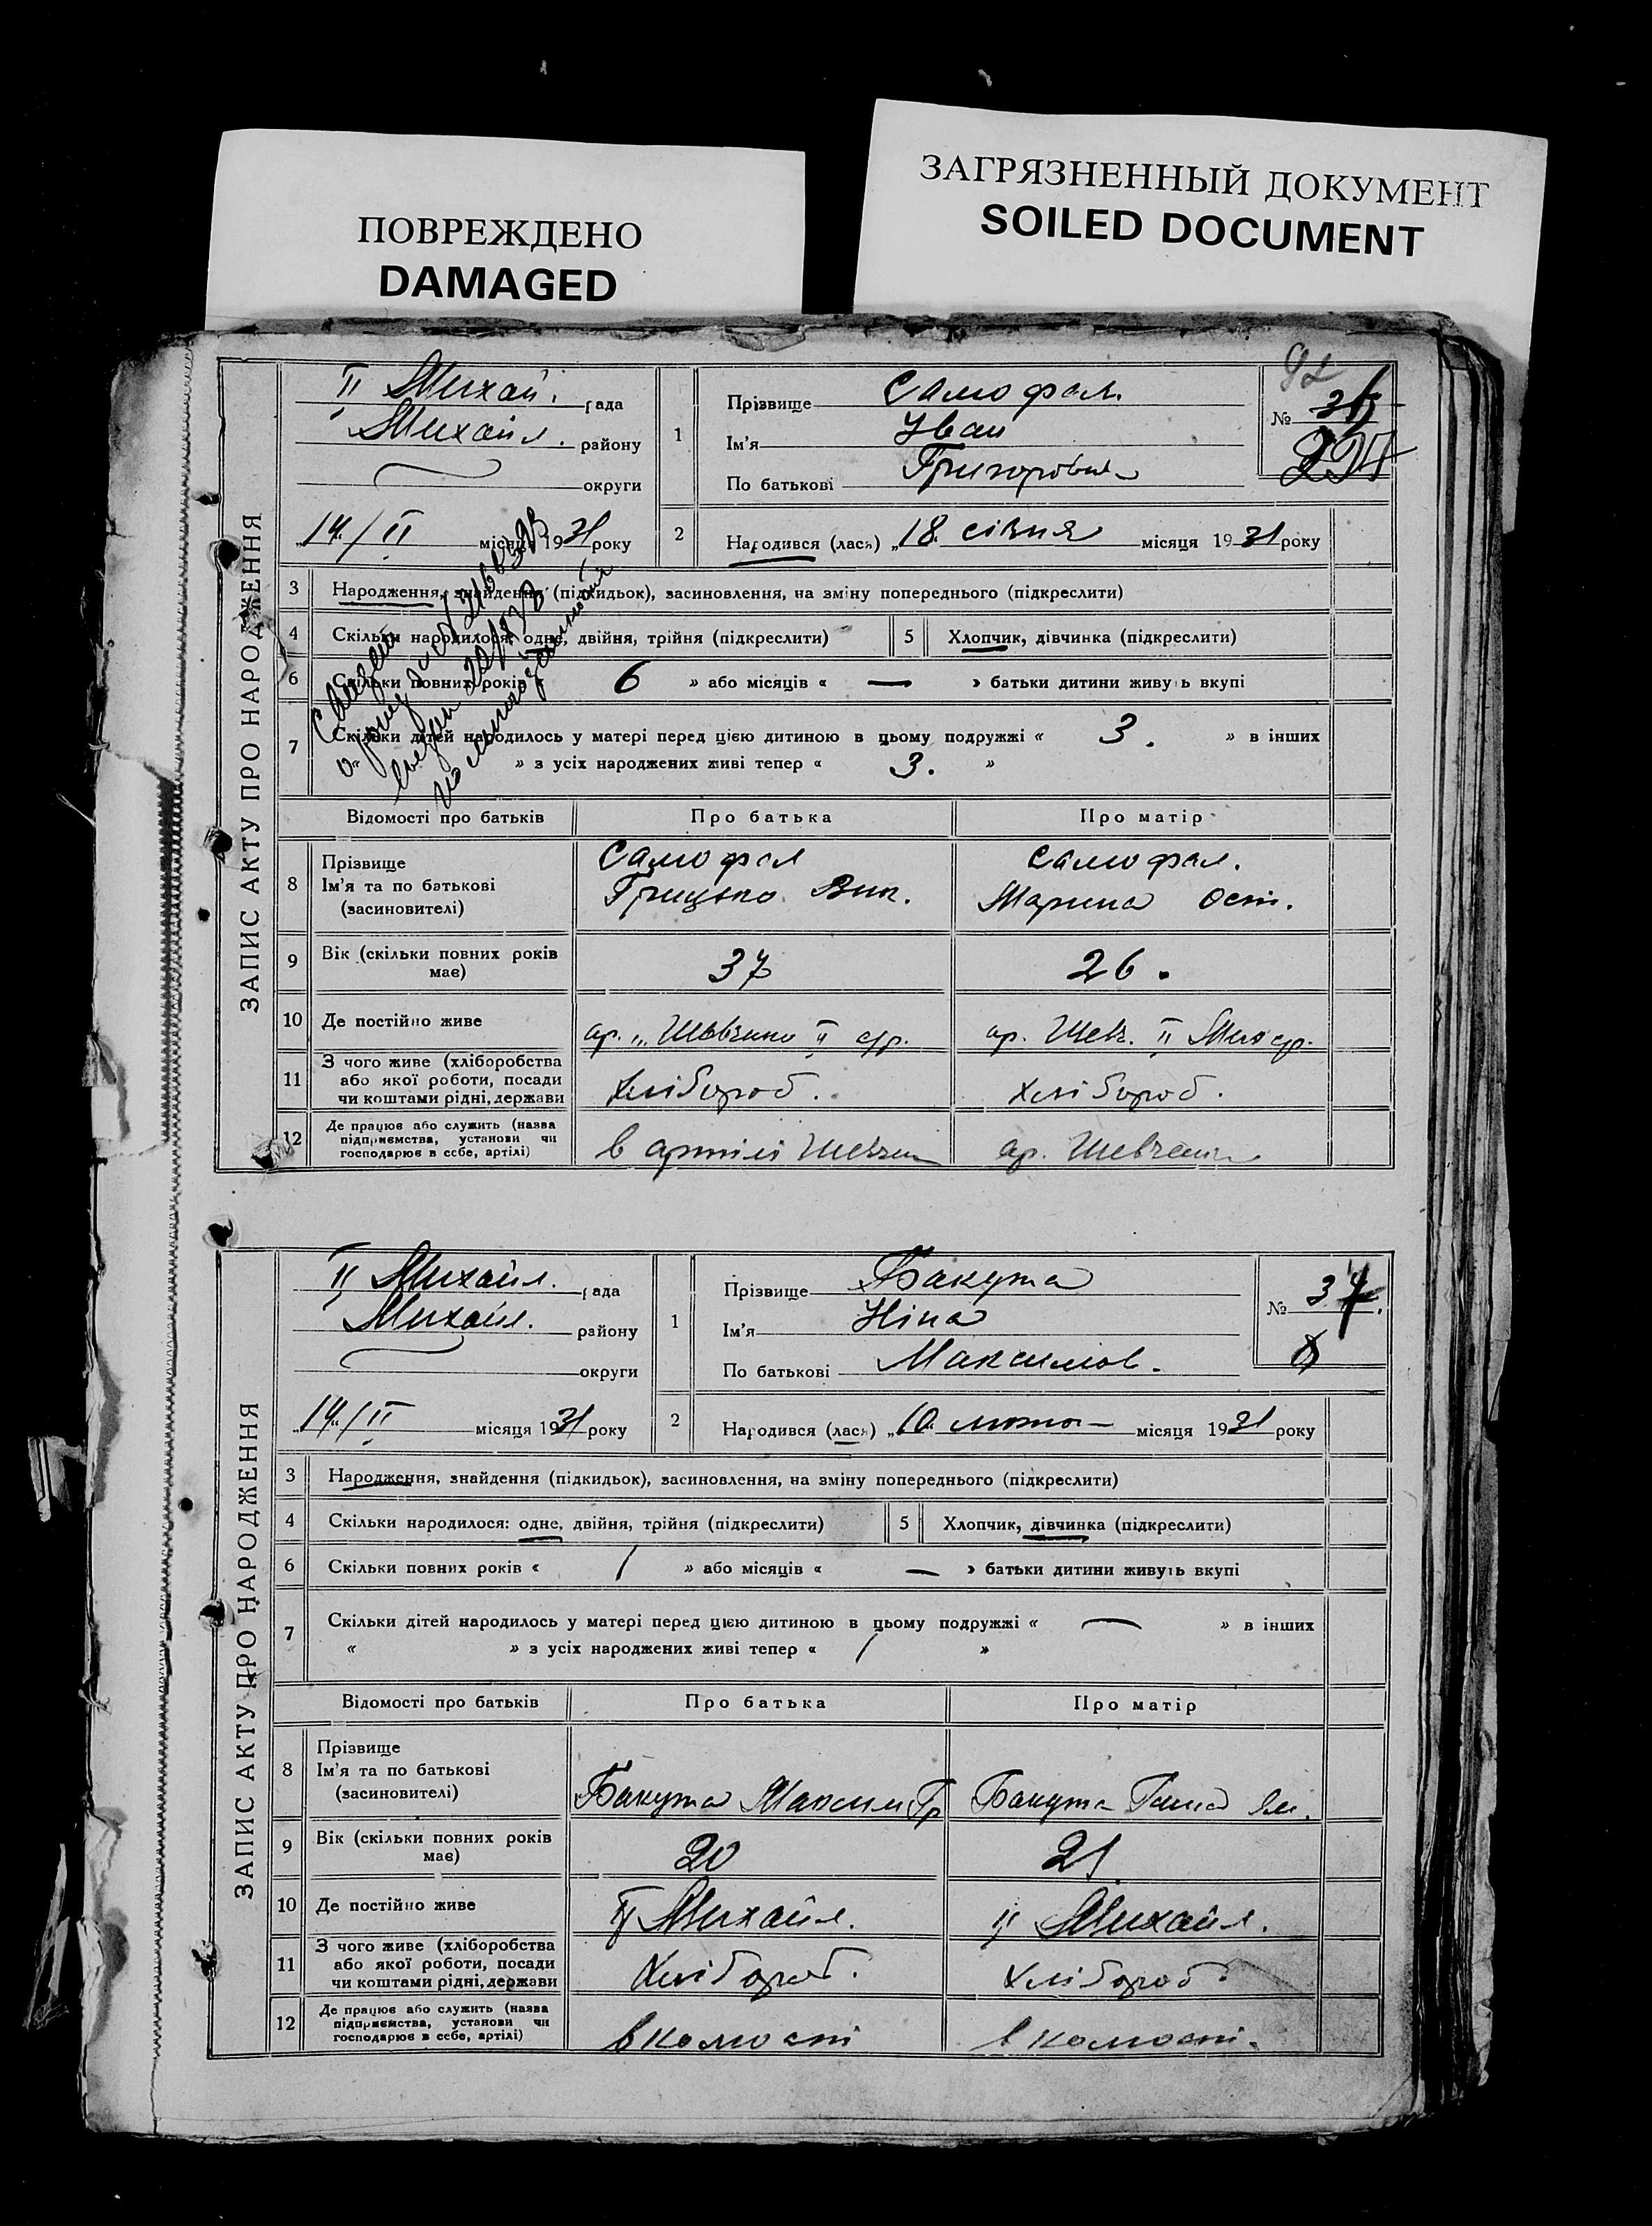 ПОВРЕЖДЕНО
DAMAGED
ЗАГРЯЗНЕННЫЙ ДОКУМЕНТ
SOILED DOCUMENT
ЗАПИС АКТУ ПРО НАРОДЖЕННЯ
II Михай. рада
Михайл. району
округи
14/II місяця 1931 року
1 Прізвище Самофал.
Ім'я Іван
По батькові Григорович
92
№ 36
2 Народився (лася) „18 січня місяця 1931 року
3 Народження, знайдення (підкидьок), засиновлення, на зміну попереднього (підкреслити)
4 Скільки народилося: одне, двійня, трійня (підкреслити) 5 Хлопчик, дівчинка (підкреслити)
6 Скільки повних років « 6 » або місяців « — » батьки дитини живуть вкупі
7 Скільки дітей народилось у матері перед цією дитиною в цьому подружжі « 3. » в інших
« » з усіх народжених живі тепер « 3. »
Відомості про батьків Про батька Про матір
8 Прізвище
Ім'я та по батькові
(засиновителі)
Самофал
Грицько Вик.
Самофал.
Марина Ост.
9 Вік (скільки повних років має) 37 26.
10 Де постійно живе
ар. II с/р. ар. Шевч. II Мих с/р.
11 З чого живе (хліборобства
або якої роботи, посади
чи коштами рідні, держави
Хлібороб. Хлібороб.
12 Де працює або служить (назва
підприємства, установи чи
господарює в себе, артілі)
в артілі Шевчен ар. Шевченк
ЗАПИС АКТУ ПРО НАРОДЖЕННЯ
II Михайл. рада
Михайл. району
округи
14/II місяця 1931 року
1 Прізвище Бакута
Ім'я Ніна
По батькові Максимов.
№ 37.
2 Народився (лася) „10 лютого місяця 1931 року
3 Народження, знайдення (підкидьок), засиновлення, на зміну попереднього (підкреслити)
4 Скільки народилося: одне, двійня, трійня (підкреслити) 5 Хлопчик, дівчинка (підкреслити)
6 Скільки повних років « 1 » або місяців « — » батьки дитини живуть вкупі
7 Скільки дітей народилось у матері перед цією дитиною в цьому подружжі « — » в інших
« » з усіх народжених живі тепер « 1 »
Відомості про батьків Про батька Про матір
8 Прізвище
Ім'я та по батькові
(засиновителі)
Бакута Максим Гр Бакута
9 Вік (скільки повних років має) 20 21
10 Де постійно живе II Михайл. II Михайл.
11 З чого живе (хліборобства
або якої роботи, посади
чи коштами рідні, держави
Хлібороб. Хлібороб.
12 Де працює або служить (назва
підприємства, установи чи
господарює в себе, артілі)